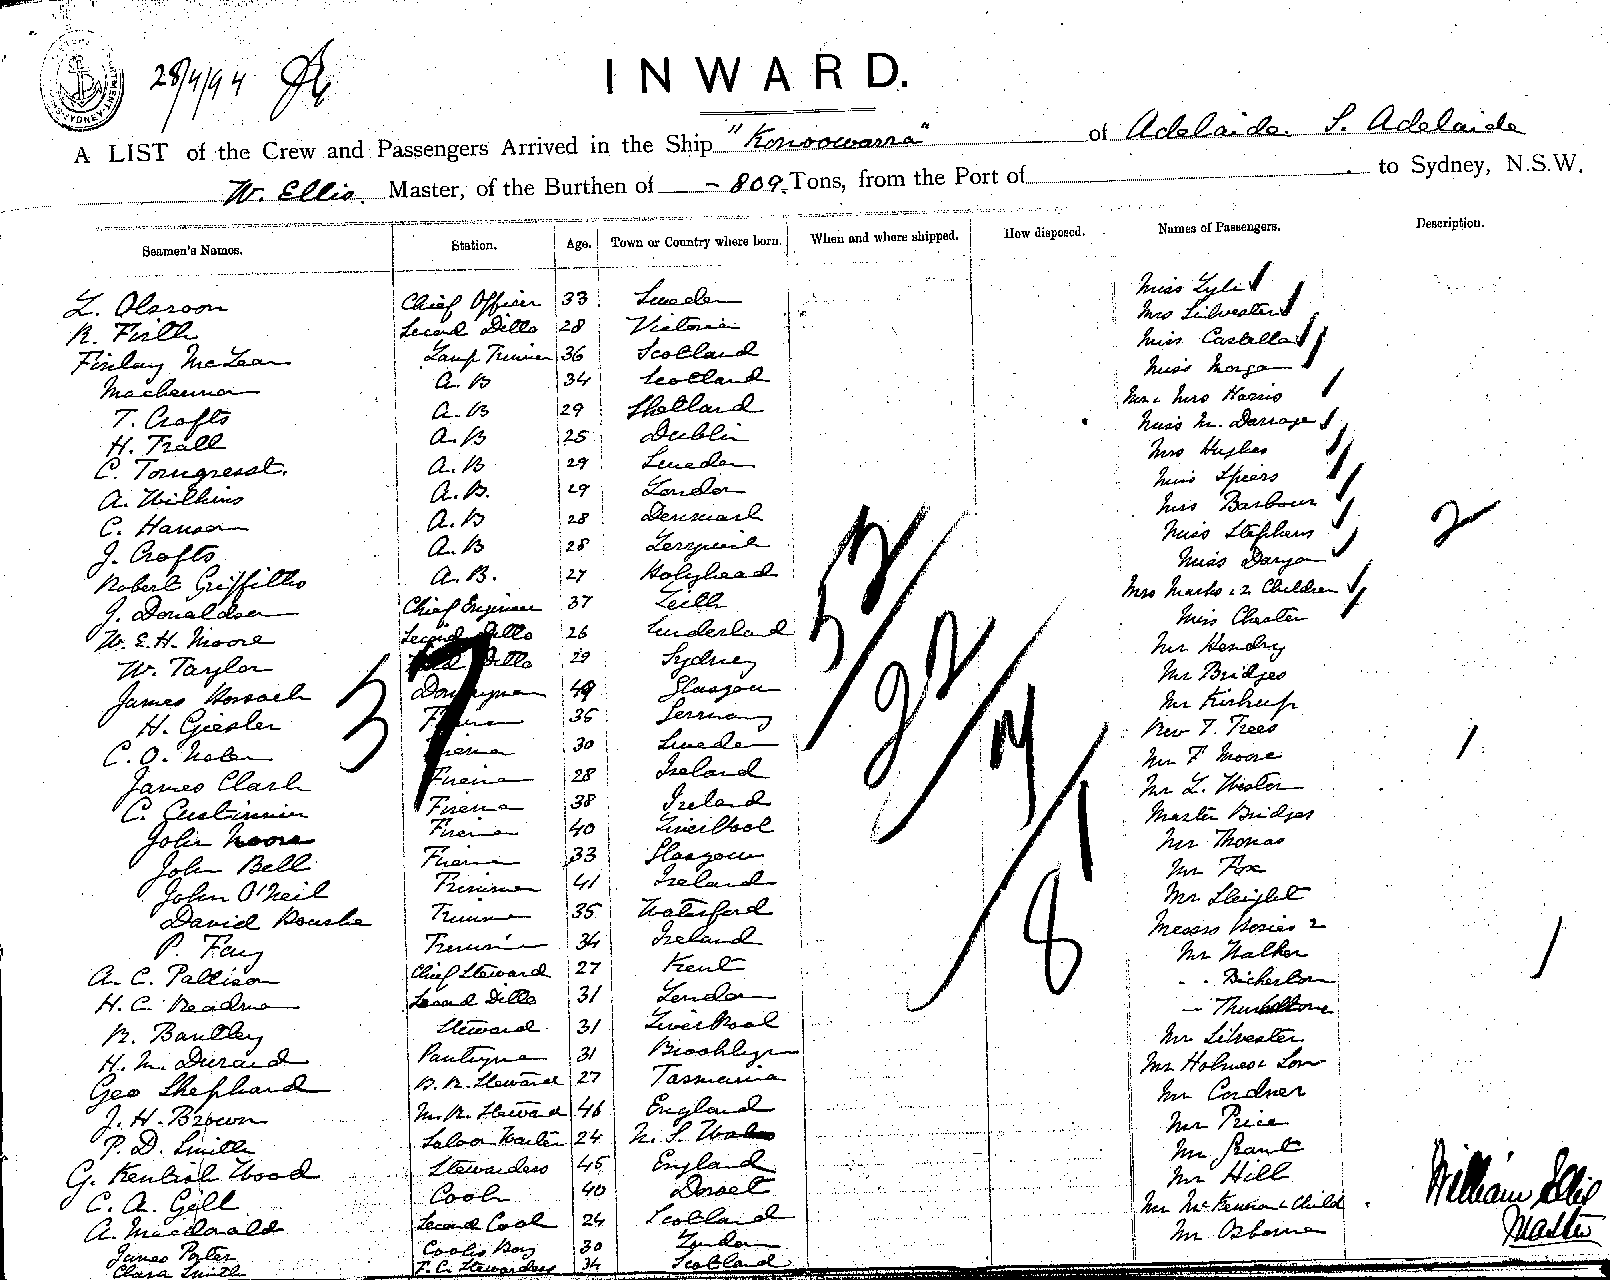 28/4/94
INWARD.
A LIST of the Crew and Passengers Arrived in the Ship "Konoowarra" of Adelaide. S. Adelaide
W. Ellis. Master, of the Burthen of - 809. Tons, from the Port of to Sydney, N.S.W.
Seamen's Names. Station. Age. Town or Country where born. When and where shipped. How disposed. Names of Passengers. Description.
L. Olsroon Chief Officer 33 Sweden Miss Lyle
R. Firth Second Ditto 28 Victoria Mrs Silvester
Finlay McLean Lamp Trimmer 36 Scotland Miss Castella
A.B 34 Scotland Miss Morgan
T. Crofts A.B 29 Shetland Mr & Mrs Harris
H. Trall A.B 25 Dublin Miss M. Darrage
C. Torngresat. A.B 29 Sweden Mrs Hughes
A. Wilkins A.B. 29 London Miss Speers
C. Hanson A.B 28 Denmark Mrs Barbour
J. Crofts A.B 28 Lerwick Miss Stephens
Robert Griffiths A.B. 27 Holyhead Miss
J. Donaldson Chief Engineer 37 Leith Mrs Marks & 2 Children
W. E. H. Moore Second Ditto 26 Sunderland Miss Chester
W. Taylor Third Ditto 29 Sydney Mr Hendry
James Donkeyman 49 Glasgow Mr Bridges
H. Giesler Fireman 35 Germany Mr
C. O. Nolen Fireman 30 Sweden Rev T. Trees
James Clark Fireman 28 Ireland Mr F Moore
C. Fireman 38 Ireland Mr L. Weston
John Moore Fireman 40 Liverpool Master Bridges
John Bell Fireman 33 Glasgow Mr Thomas
John O'Neil Trimmer 41 Ireland Mr Fox
David Rourke Trimmer 35 Waterford Mr Sleight
P. Fay Trimmer 34 Ireland Messrs 2
A. C. Pallison Chief Steward 27 Kent Mr Walker
H. C. Readman Second Ditto 31 London " Bickerton
R. Bantley Steward 31 Liverpool "
H. M. Durand Pantryman 31 Brooklyn Mr Silvester
Geo Shephard B. R. Steward 27 Tasmania Mr Holmes & Son
J. H. Brown M. R. Steward 46 England Mr Cordner
P. D. Smith Saloon Waiter 24 N. S. Wales Mr Price
G. Wood Stewardess 45 England Mr Grant
C. A. Gell Cook 40 Dorset Mr Hill
A. Macdonald Second Cook 24 Scotland Mr & Child
James Porter Cooks Boy 30 London Mr Osborne
Clara Smith F.C. Stewardess 34 Scotland
37
52
22
14
8
1
2
1
1
William Ellis
Master